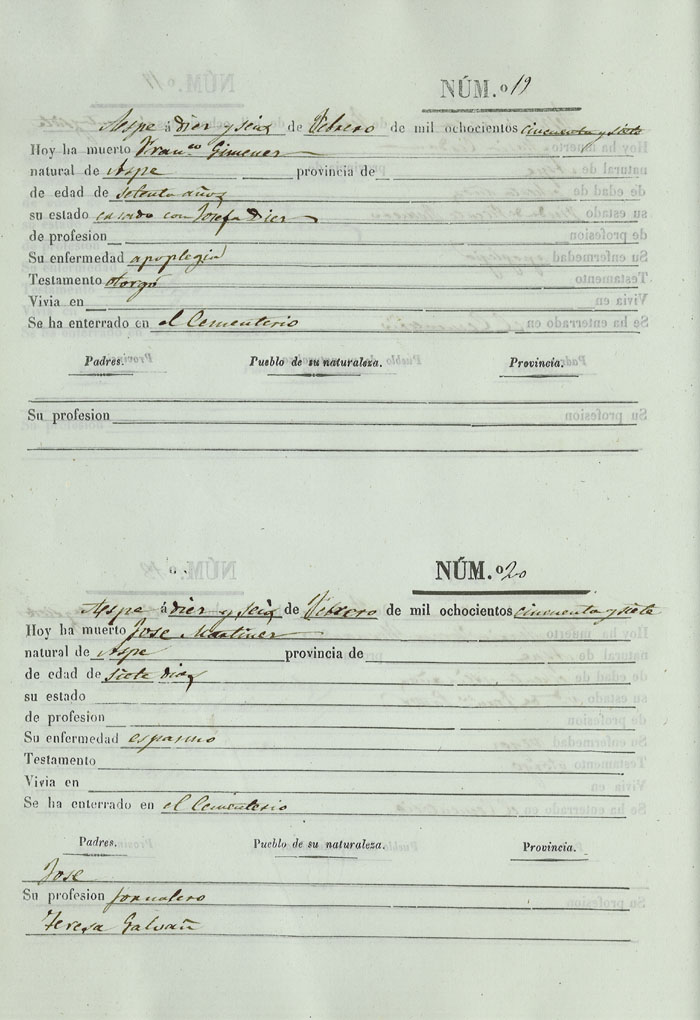 NÚM.º 19
Aspe á dier y seis de Febrero de mil ochocientos cincuenta y siete
Hoy ha muerto Fran.co Gimener
natural de Aspe provincia de
de edad de setenta años
su estado casado con Josefa Dier
de profesion
Su enfermedad apoplegia
Testamento otorgó
Vivia en
Se ha enterrado en el Cementerio
Padres. Pueblo de su naturaleza. Provincia.
Su profesion
NÚM.º 20
Aspe á dier y seis de Febrero de mil ochocientos cincuenta y siete
Hoy ha muerto Jose Martiner
natural de Aspe provincia de
de edad de siete dias
su estado
de profesion
Su enfermedad espasmo
Testamento
Vivia en
Se ha enterrado en el Cementerio
Padres. Pueblo de su naturaleza. Provincia.
Jose
Su profesion jornalero
Teresa Galvañ